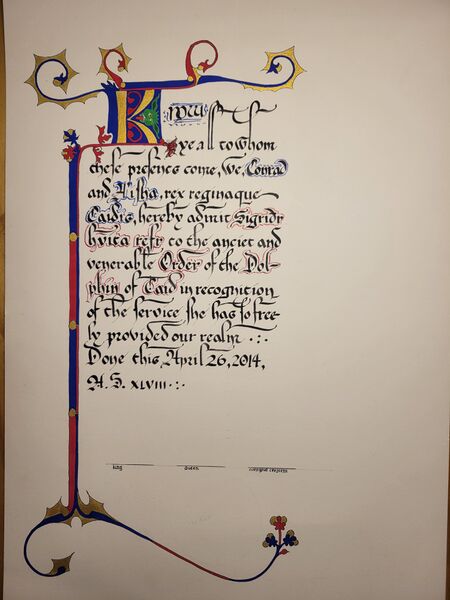 Know
ye all to whom
these presents come, We, Conrad
and Alisha, rex reginaque
Caidis, hereby admit Sigridr
hvita refr to the anciet and
venerable Order of the Dol-
phin of Caid in recognition
of the service she has so free-
ly provided our realm .:.
Done this, April 26, 2014,
A. S. XLVIII .:.
king queen